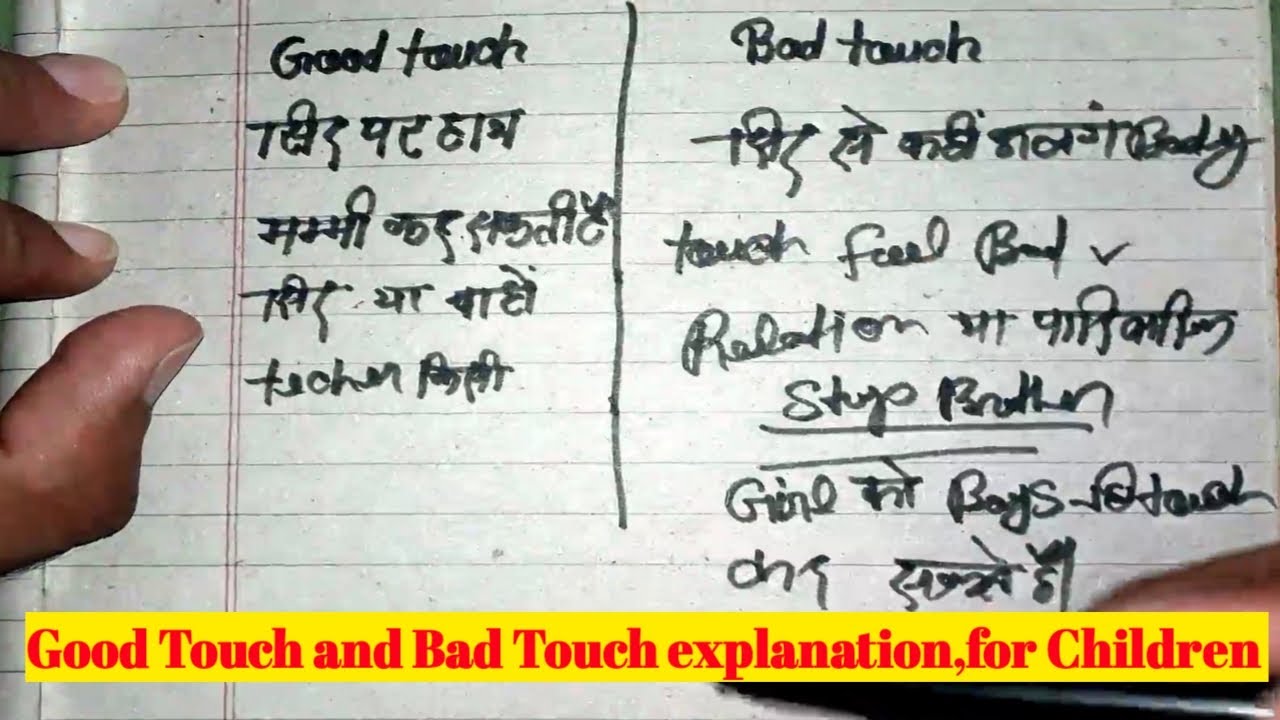 Good touch
सिर पर हाथ
मम्मी कर सकती है
सिर या
techer किसी
Bad touch
सिर से कहीं अलग Body
touch feel Bad ✓
Relation या
Stup Brother
Girl को Boys touch
कर सकते है।
Good Touch and Bad Touch explanation,for Children